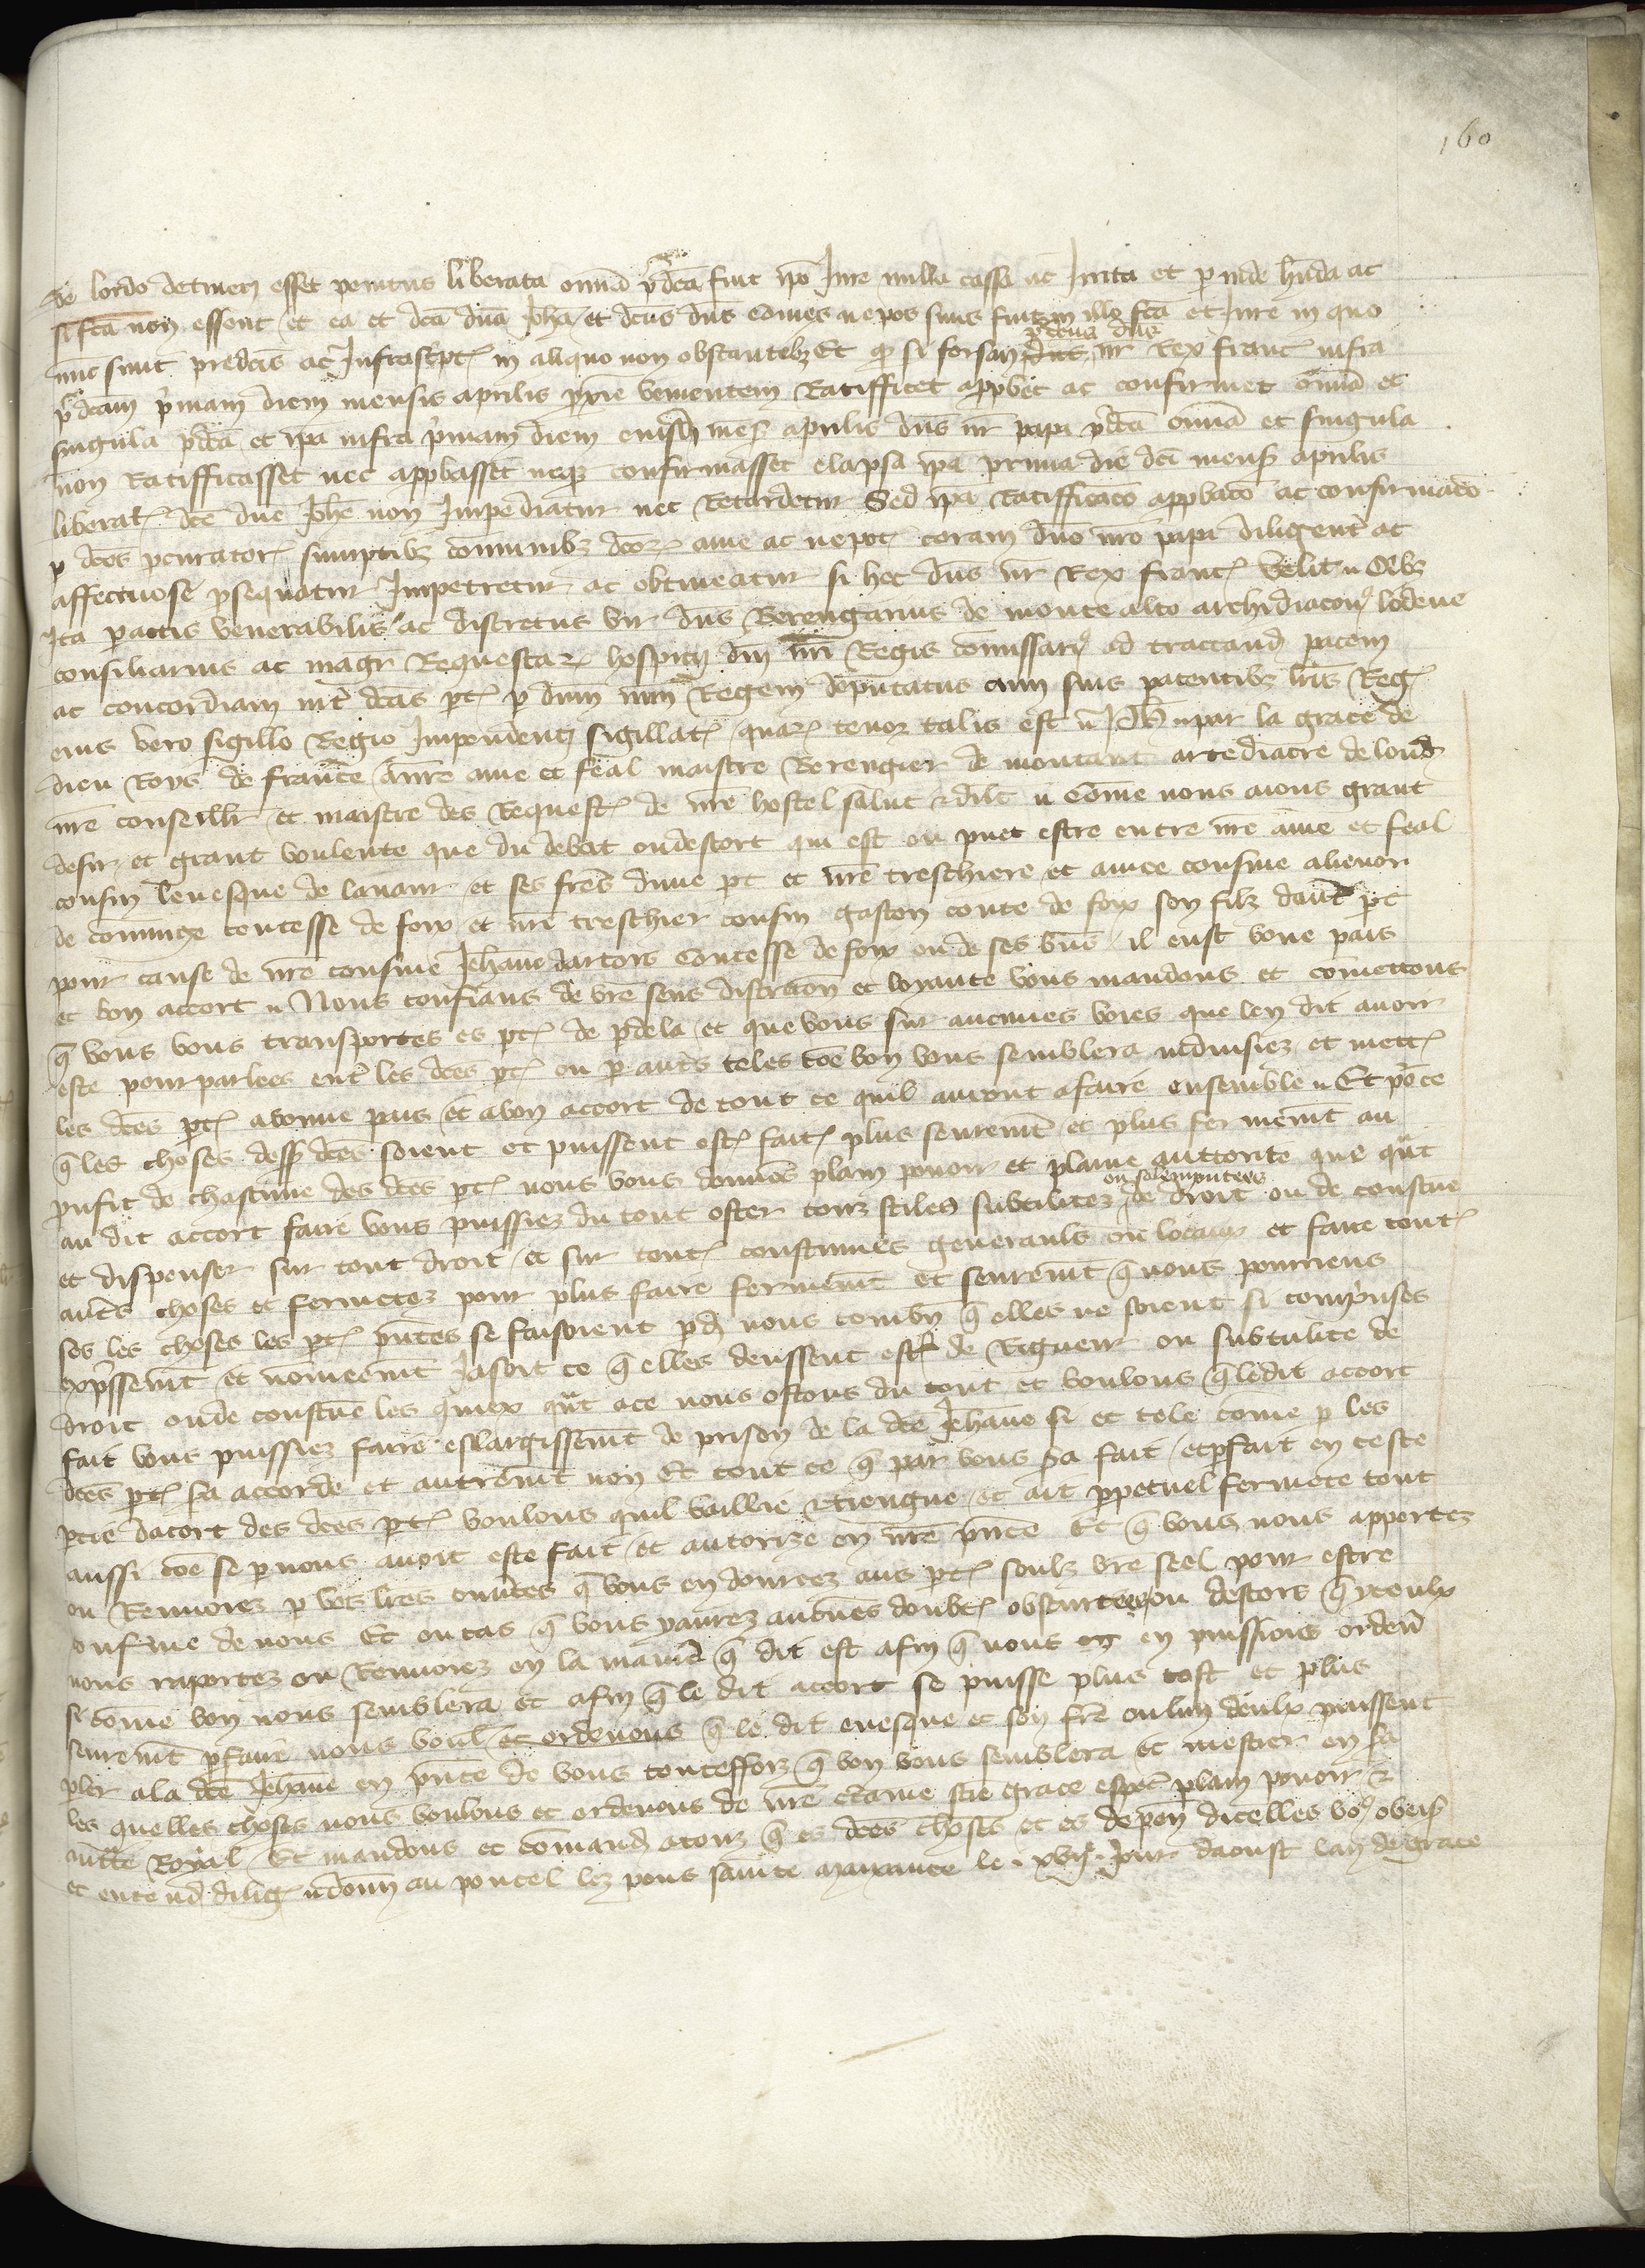 160
de lordo detinetur esset penitus liberata omnia predicta sint ipso Jure nulla cassa ac Irrita et perinde habenda ac
si facta non essent et ea et dicta domina Johanna et dictus dominus Comes nepos suus sint in illo statu et Jure in quo
nunc sunt predictis ac Infrascriptis in aliquo non obstantibus Et quod si forsan predictus dominus noster Rex francie infra
predictam primam diem mensis aprilis proxime venientem Ratifficet approbet ac confirmet omnia et
singula predicta et ipsa infra primam diem eiusdem mensis aprilis dominus noster papa predicta omnia et singula
non Ratifficasset nec approbasset neque confirmasset elapsa ipsa prima die dicti mensis aprilis
liberatio dicte domine Johanne non Impediatur nec Retardetur Sed ipsa Ratifficatio approbatio ac confirmatio
per dictos procuratores sumptibus communibus dictorum avie ac nepotis coram domino nostro papa diligenter ac
affectuose prosequatur Impetretur ac obtineatur si hec dominus noster Rex francie velit Quibus
Ita peractis venerabilis ac discretus vir dominus Berengarius de monte alto archidiaconus lodeve
consiliarius ac magister Requestarum hospicii domini nostri Regis commissarius ad tractandum pacem
ac concordiam inter dictas partes per dominum nostrum Regem deputatus cum suis patentibus litteris Regis
eius vero sigillo Regio Impendenti sigillatis quarum tenor talis est Ph par la grace de
dieu Roys de france A nostre ame et feal maistre Berengier de montaut arcediacre de
nostre conseiller et maistre des Requestes de nostre hostel salut et dilection Comme nous aions grant
desir et grant voulente que du debat ou descort qui est ou puet estre entre nostre ame et feal
cousin levesque de lavaur et ses freres dune part et nostre treschiere et amee cousine alienor
de comminge contesse de foix et nostre treschier cousin gaston conte de foix son filz dautre part
pour cause de nostre cousine Jehanne dartois Contesse de foix ou de ses biens il eust bone pais
et bon accort Nous confians de vostre sens discretion et loyaute vous mandons et commettons
que vous vous transportes es parties de pardela et que vous sur aucunes voies que len dit avoir
este pourparlees entre les dictes parties ou par autres teles comme bon vous semblera induisiez et mettes
les dictes parties a bonne pais et a bon accort de tout ce quil auront a faire ensemble Et pour ce
que les choses dessus dictes soient et puissent estre faites plus seurement et plus fermement au
profit de chascune des dictes parties nous vous donnons plain povoir et plaine auctorite que quant
au dit accort faire vous puissiez du tout oster touz stiles subtilitez ou solempnitees de droit ou de coustume
et dispenser sur tout droit et sur toutes coustumes generauls ou locaux et faire toutes
autres choses et fermetez pour plus faire fermement et seurement que nous pourriens
ses les choses les parties presentes se faisoient pardevant nous combien que elles ne soient si comprinses
expressement et nommeement Jasoit ce que elles deussent estre de Rigueur ou subtilite de
droit ou de coustume les quiex quant a ce nous ostons du tout et voulons que le dit accort
fait vous puissiez faire eslargissement de prison de la dicte Jehanne si et tele comme par les
dictes parties sera accorde et autrement non Et tout ce que par vous sera fait et parfait en ceste
partie dacort des dictes parties voulons quil vaille et tiengne et ait perpetuel fermete tout
aussi comme se par nous avoit este fait et autorize en nostre presence Et que vous nous apportez
ou Renvoiez par vos lettres ouvertes que vous en donrrez aus parties soulz vostre seel pour estre
conferme de nous Et ou cas que vous y aurez aucunes doubtes obscurtees ou descors que yceulx
nous raportez ou Renvoiez en la maniere que dit est afin que nous en puissions ordener
si comme bon nous semblera et afin que le dit accort se puisse plus tost et plus
seurement parfaire nous voulons et ordenons que le dit evesque et son frere ou lun deulx puissent
parler a la dicte Jehanne en presence de vous toutesfois que bon vous semblera et mestier en sera
les quelles choses nous voulons et ordenons de nostre certaine science grace especial plain povoir et
auctorite Royal Et mandons et commandons a touz que es dictes choses et es dependences dicelles vous obeissent
et entendent diligemment donne au poncel lez pons sainte maxance le xviie Jour daoust lan de grace